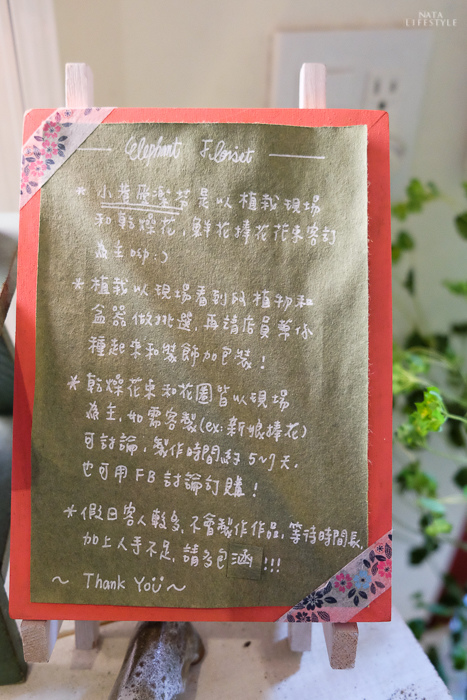 NATA
LIFESTYLE
Elephant Florist
* 小曹療癒茶是以植栽現場
和乾燥花,鮮花捧花花束客訂
為主呦:)
* 植栽以現場看到的植物和
盆器做挑選,再請店員幫你
種起來和裝飾加包裝!
* 乾燥花束和花圈皆以現場
為主,如需客製(ex:新娘捧花)
可討論,製作時間約5~7天.
也可用FB討論訂購!
* 假日客人較多,不會製作作品,等待時間長,
加上人手不足,請多包涵!!!
~ Thank You ~